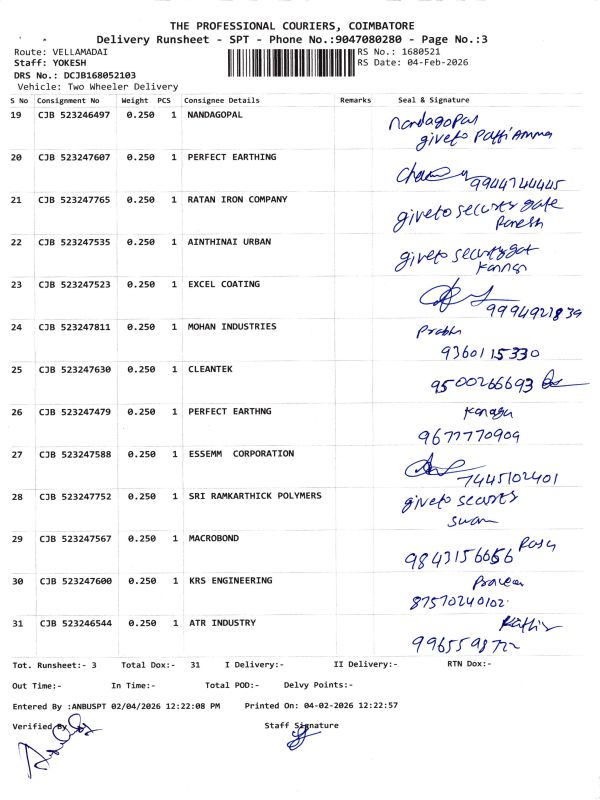 THE PROFESSIONAL COURIERS, COIMBATORE
Delivery Runsheet - SPT - Phone No.:9047080280 - Page No.:3
Route: VELLAMADAI
RS No.: 1680521
Staff: YOKESH
RS Date: 04-Feb-2026
DRS No.: DCJB168052103
Vehicle: Two Wheeler Delivery
S No Consignment No Weight PCS Consignee Details Remarks Seal & Signature
19 CJB 523246497 0.250 1 NANDAGOPAL Nandagopal
giveto Paffi Amma
20 CJB 523247607 0.250 1 PERFECT EARTHING
9944744445
21 CJB 523247765 0.250 1 RATAN IRON COMPANY giveto security gate
22 CJB 523247535 0.250 1 AINTHINAI URBAN giveto
Kannan
23 CJB 523247523 0.250 1 EXCEL COATING
9994921839
24 CJB 523247811 0.250 1 MOHAN INDUSTRIES Prabhu
9360115330
25 CJB 523247630 0.250 1 CLEANTEK
9500266693
26 CJB 523247479 0.250 1 PERFECT EARTHNG
9677770909
27 CJB 523247588 0.250 1 ESSEMM CORPORATION
7445102401
28 CJB 523247752 0.250 1 SRI RAMKARTHICK POLYMERS giveto
29 CJB 523247567 0.250 1 MACROBOND
9843156656
30 CJB 523247600 0.250 1 KRS ENGINEERING
87570240102
31 CJB 523246544 0.250 1 ATR INDUSTRY
Tot. Runsheet:- 3 Total Dox:- 31 I Delivery:- II Delivery:- RTN Dox:-
Out Time:- In Time:- Total POD:- Delvy Points:-
Entered By :ANBUSPT 02/04/2026 12:22:08 PM Printed On: 04-02-2026 12:22:57
Verified By Staff Signature